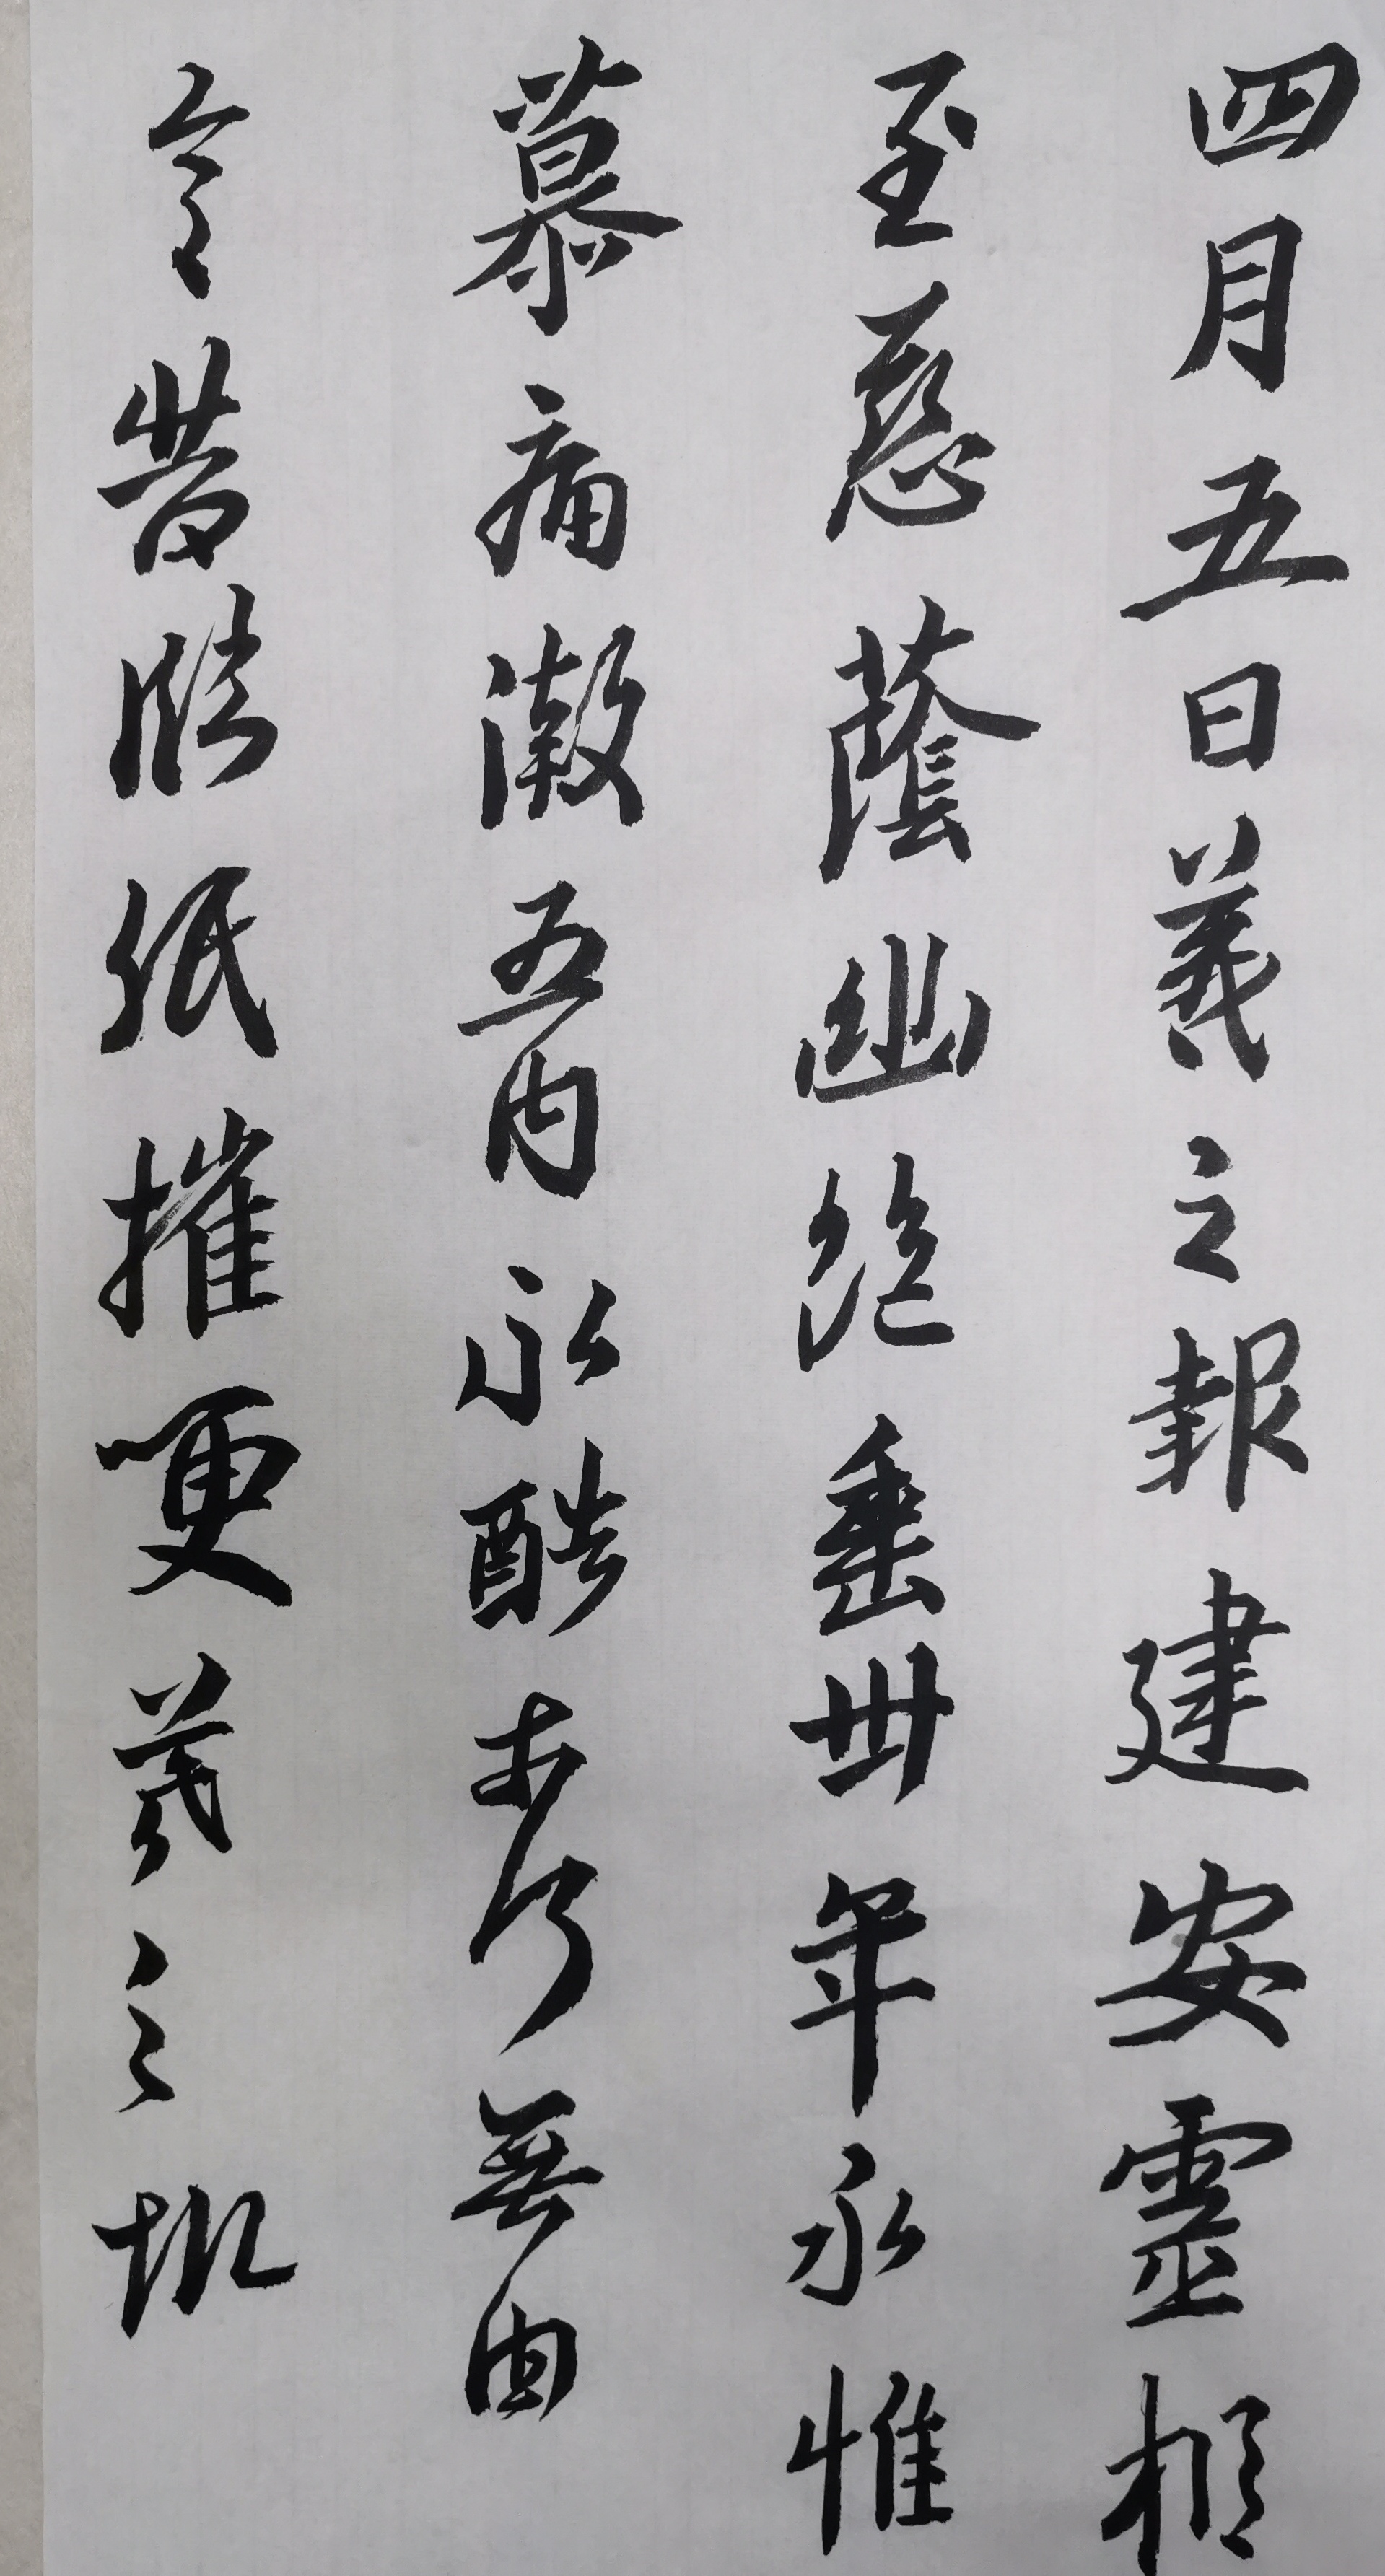 四月五日羲之報建安靈柩
至慈蔭幽絕垂卅年永惟
慕痛徹五內永酷奈何無由
言臨紙摧哽羲之報